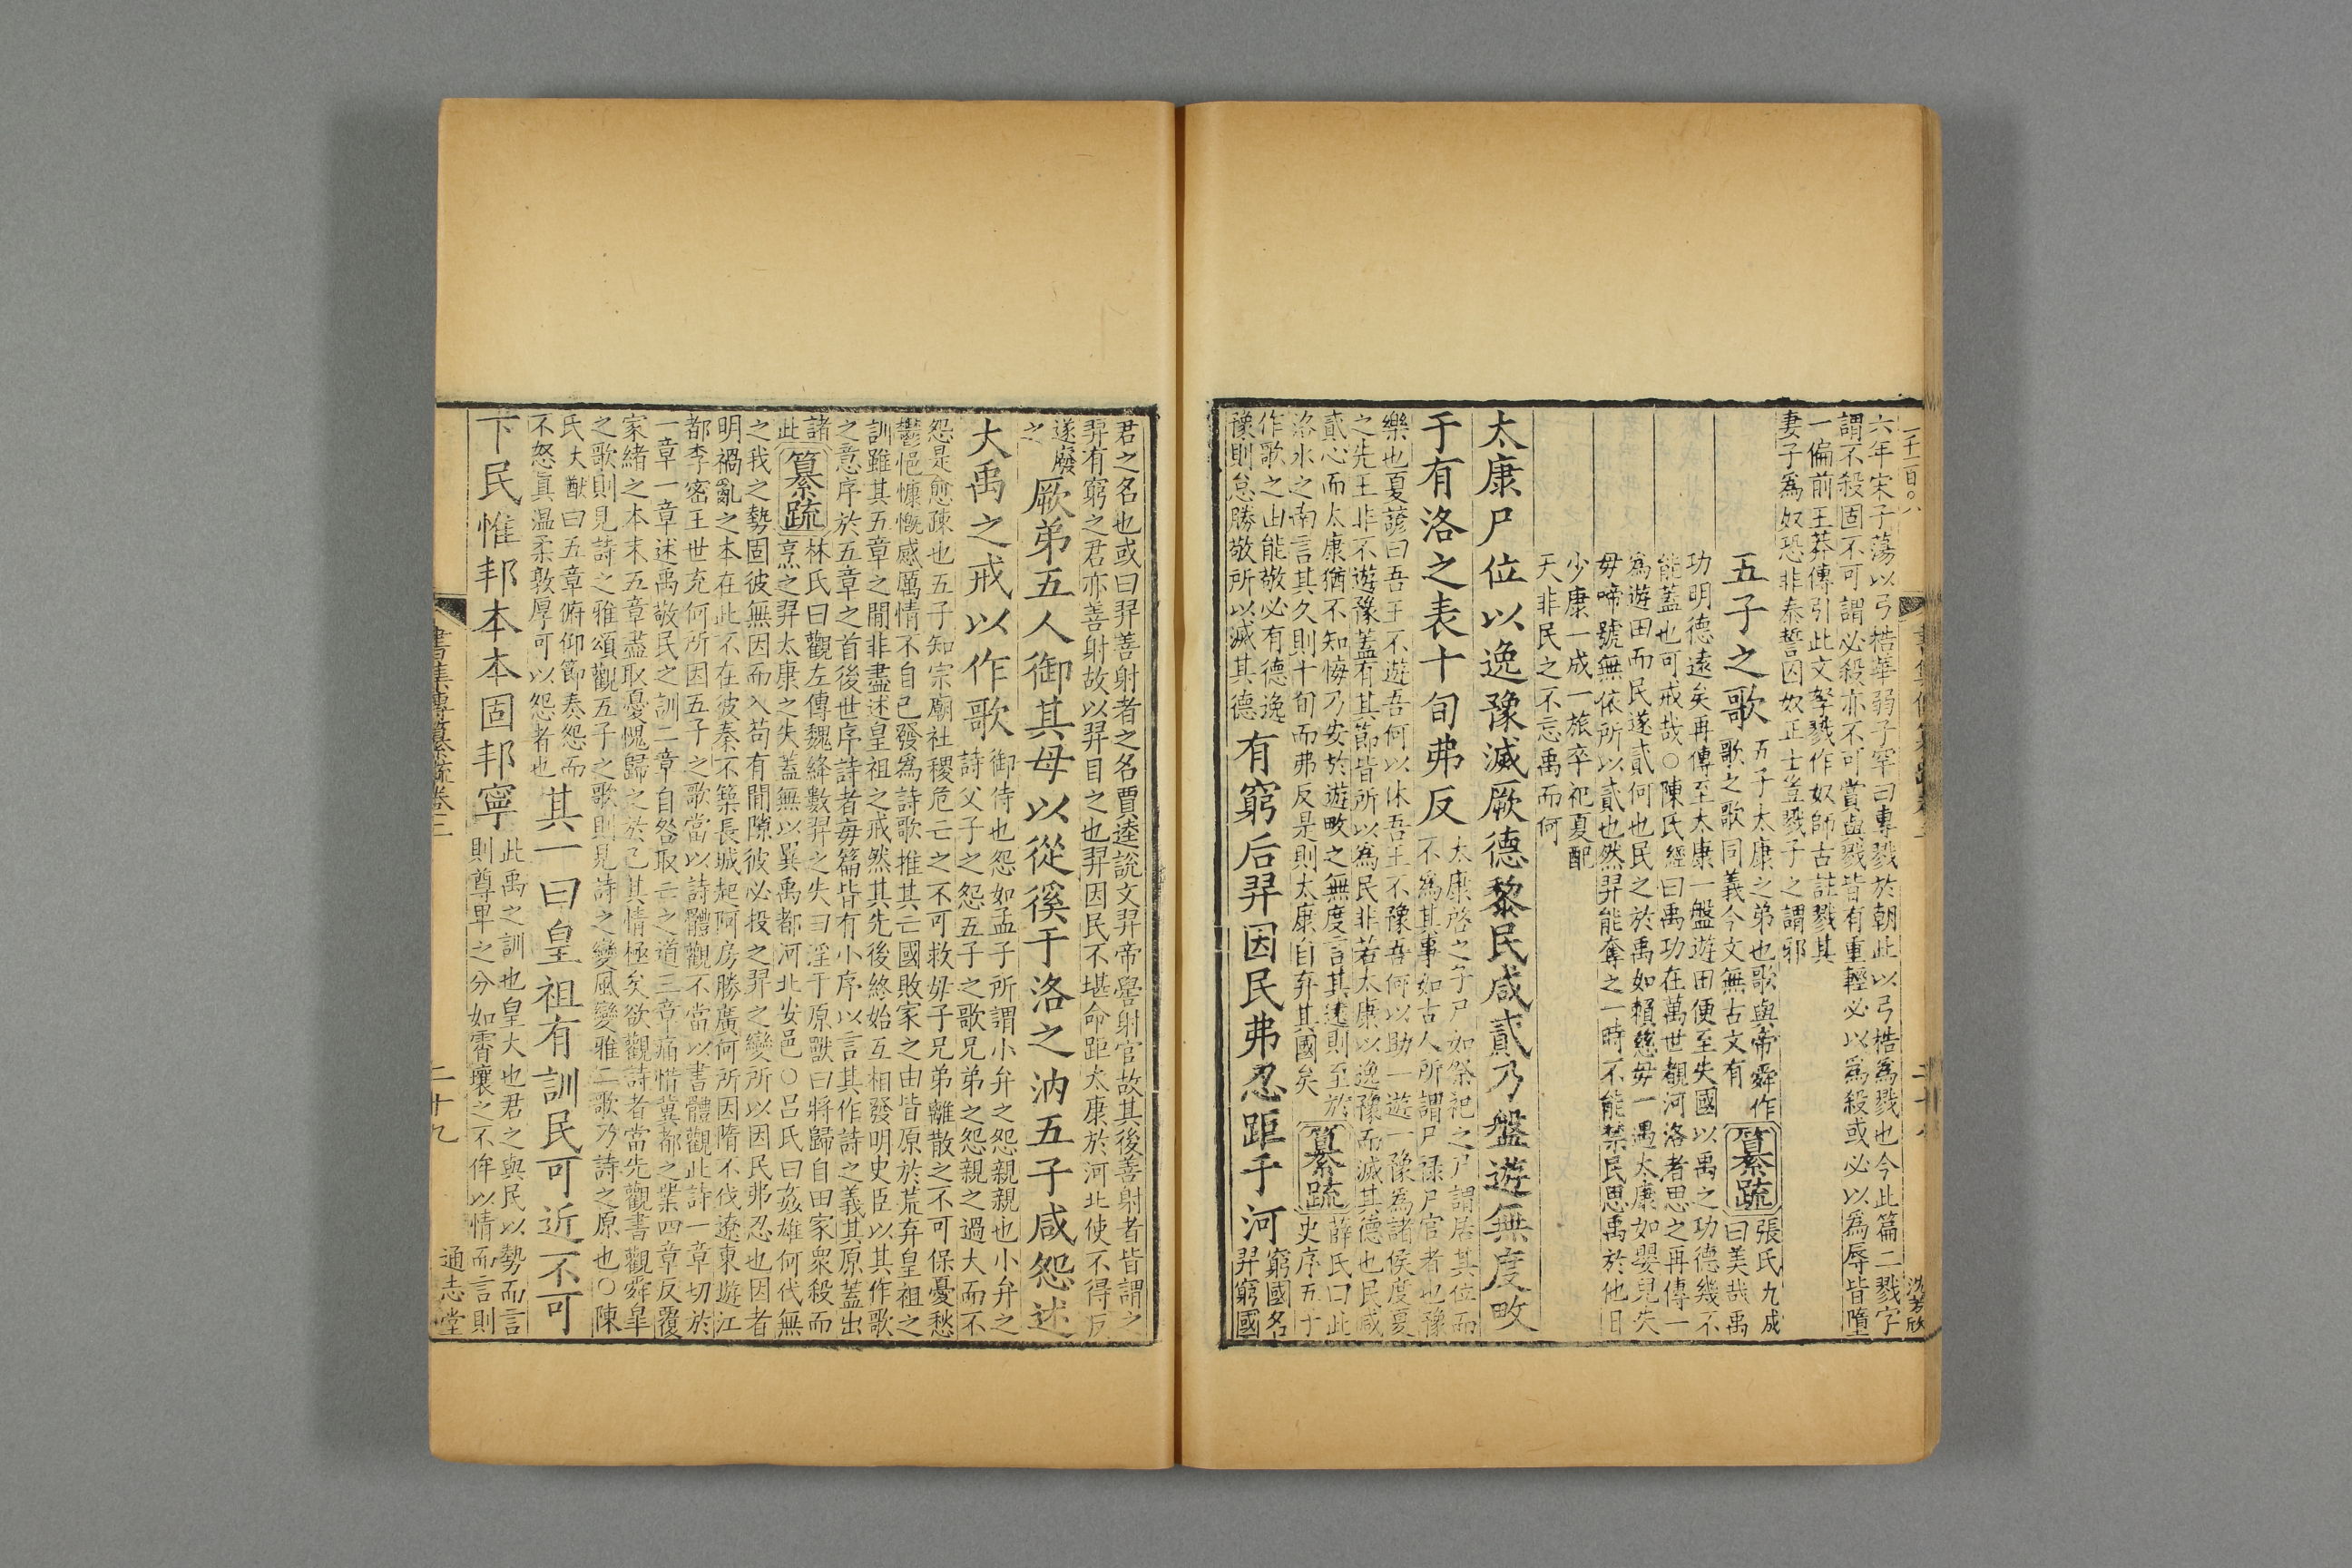 六年宋子蕩以弓梏華弱子罕曰專戮於朝此以弓梏為戮也今此篇二戮字
謂不殺固不可謂必殺亦不可賞與戮皆有重輕必以為殺或必以為辱皆墮
一偏前王莽傳引此文孥戮作奴師古註戮其
妻子為奴恐非泰誓囚奴正士豈戮子之謂邪
五子之歌
五子太康之弟也歌與帝舜作
歌之歌同義今文無古文有
纂疏
張氏九成
曰美哉禹
功明德遠矣再傳至太康一盤遊田便至失國以禹之功德幾不
能蓋也可戒哉○陳氏經曰禹功在萬世觀河洛者思之再傳一
為遊田而民遂貳何也民之於禹如賴慈母一遇太康如嬰兒失
母啼號無依所以貳也然羿能奪之一時不能禁民思禹於他日
少康一成一旅卒祀夏配
天非民之不忘禹而何
太康尸位以逸豫滅厥德黎民咸貳乃盤遊無度畋
于有洛之表十旬弗反
太康啓之子尸如祭祀之尸謂居其位而
不為其事如古人所謂尸祿尸官者也豫
樂也夏諺曰吾王不遊吾何以休吾王不豫吾何以助一遊一豫為諸侯度夏
之先王非不遊豫蓋有其節皆所以為民非若太康以逸豫而滅其德也民咸
貳心而太康猶不知悔乃安於遊畋之無度言其遠則至於
洛水之南言其久則十旬而弗反是則太康自弃其國矣
纂疏
薛氏曰此
史序五十
作歌之由能敬必有德逸
豫則怠勝敬所以滅其德
有窮后羿因民弗忍距于河
窮國名
羿窮國
君之名也或曰羿善射者之名賈逵說文羿帝嚳射官故其後善射者皆謂之
羿有窮之君亦善射故以羿目之也羿因民不堪命距太康於河北使不得反
遂廢
之
厥弟五人御其母以從徯于洛之汭五子咸怨述
大禹之戒以作歌
御侍也怨如孟子所謂小弁之怨親親也小弁之
詩父子之怨五子之歌兄弟之怨親之過大而不
怨是愈疎也五子知宗廟社稷危亡之不可救母子兄弟離散之不可保憂愁
鬱悒慷慨感厲情不自已發為詩歌推其亡國敗家之由皆原於荒弃皇祖之
訓雖其五章之間非盡述皇祖之戒然其先後終始互相發明史臣以其作歌
之意序於五章之首後世序詩者每篇皆有小序以言其作詩之義其原蓋出
諸
此
纂疏
林氏曰觀左傳魏絳數羿之失曰淫于原獸曰將歸自田家衆殺而
亨之羿太康之失蓋無以異禹都河北安邑○呂氏曰姦雄何代無
之我之勢固彼無因而入苟有間隙彼必投之羿之變所以因民弗忍也因者
明禍亂之本在此不在彼秦不築長城起阿房勝廣何所因隋不伐遼東遊江
都李密王世充何所因五子之歌當以詩體觀不當以書體觀此詩一章切於
一章一章述禹敬民之訓二章自咎取亡之道三章痛惜冀都之業四章反覆
家緒之本末五章盡取憂愧歸之於己其情極矣欲觀詩者當先觀書觀舜臯
之歌則見詩之雅頌觀五子之歌則見詩之變風變雅二歌乃詩之原也○陳
氏大猷曰五章俯仰節奏怨而
不怒眞温柔敦厚可以怨者也
其一曰皇祖有訓民可近不可
下民惟邦本本固邦寧
此禹之訓也皇大也君之與民以勢而言
則尊卑之分如霄壤之不侔以情而言則
書集傳纂疏卷二
二十九
通志堂